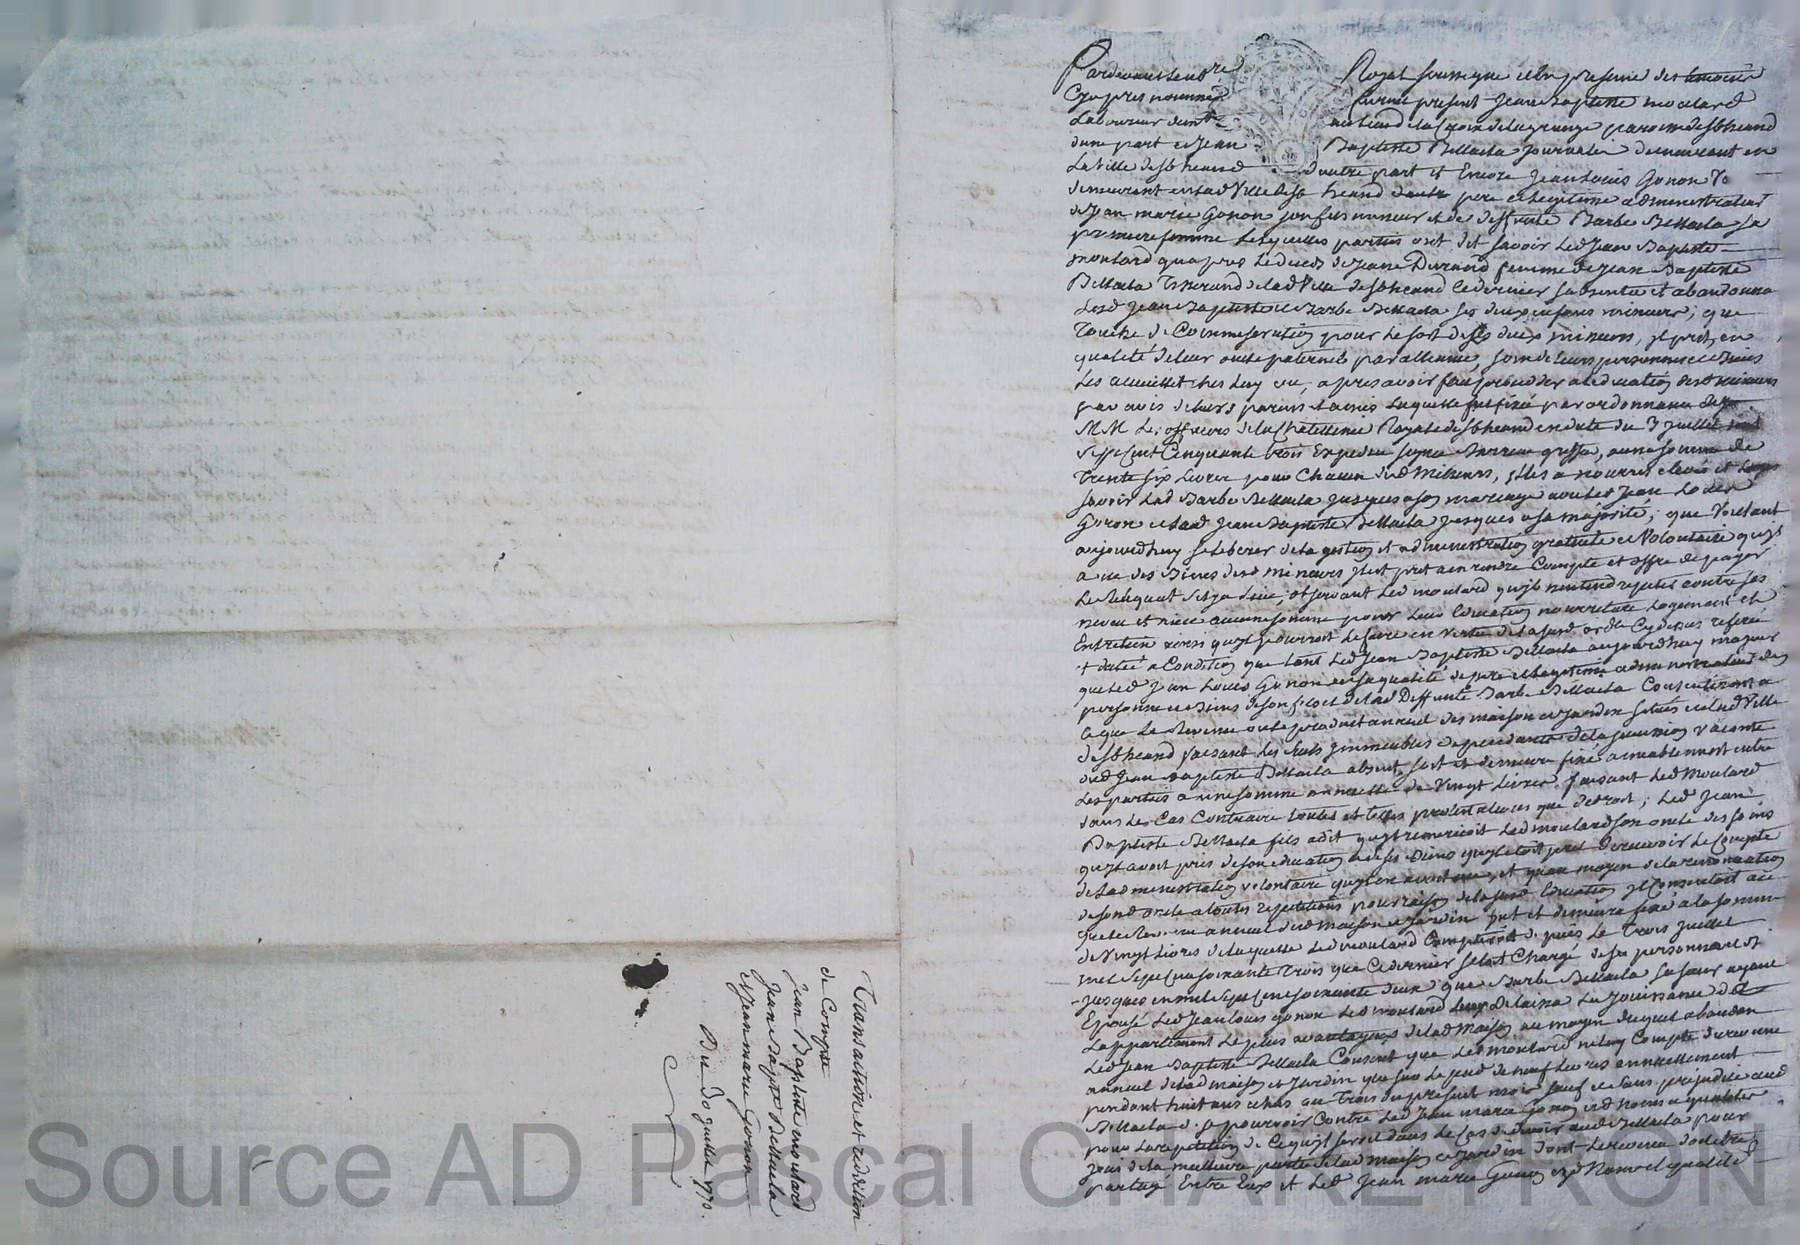 Pardevant le no.re Royal soussigné et en presence des temoins
Cyapres nommés furent presents Jean Baptiste moulard
Laboureur demt au lieu de la Croix de la grange paroisse de St heand
dune part et Jean Baptiste Bellacla Journalier demeurant en
La Ville de St heand d'autre part et Encore Jean Louis Gonon
demeurant en lad Ville de St heand dautre pere et legitime administrateur
de Jean marie Gonon son fils mineur et de deffunte Barbe Bellacla sa
premiere femme Lesquelles parties ont dit savoir Led Jean Baptiste
moulard quapres Le deces de Jeane Durand femme de Jean Baptiste
Bellacla Tisserand de lad Ville de St heand Ce dernier sabsenta et abandonna
Lesd Jean Baptiste et Barbe Bellacla ses deux enfans mineurs, que
Touché de Commiseration pour Le sort desds deux mineurs, il prit en
qualité de leur oncle paternel par alliance, soin de leurs personnes et Biens
Les accueillit ches Luy apres avoir fait proceder a leducation desd mineurs
par avis de leurs parens et amis Laquelle fut fixée par ordonnance de
MM Les officiers de la Chatellenie Royale de St heand en date du 3 Juillet mil
Sept Cent Cinquante trois Expediée signée greffier, a une somme de
Trente six Livres pour Chacun desd Mineurs, il les a nourris elevés et
savoir Lad Barbe Bellacla jusques a son mariage avec led Jean Louis
Gonon et led Jean Baptiste Bellacla jusques a sa majorité; que Voulant
aujourdhuy se liberer de la gestion et administration gratuite et Volontaire quil
a eue des Biens desd mineurs il est pret a en rendre Compte et offre de payer
Le Reliquat sil y a lieu, observant Led moulard quil nentend repeter contre ses
neveu et niece aucune somme pour Leur Education nourriture Logement et
Entretien ainsi quil pourroit Le faire en vertu de la susd ordce Cy dessus referée
et datée a Condition que tant Led Jean Baptiste Bellacla aujourdhuy majeur
que led Jean Louis Gonon en sa qualité de pere et legitime administrateur des
personne et Biens de son fils et de lad Deffunte Barbe Bellacla Consentiront a
Ce que Le Revenu ou le produit annuel des maison et Jardin situés en lad Ville
de St heand faisant Les seuls immeubles dependants de la succession vacante
dud Jean Baptiste Bellacla absent soit et demeure fixé amiablement entre
Les parties a une somme annuelle de Vingt Livres faisant Led Moulard
dans Le Cas Contraire toutes et telles protestations que de droit; Led Jean
Baptiste Bellacla fils a dit quil remercioit Led moulard son oncle des soins
quil avoit pris de son education et de ses Biens quil etoit pret de recevoir Le Compte
de Ladministration volontaire quil en avoit eue, et quau moyen de la renonciation
de sond oncle a toutes repetitions pour raison de la susd Education il Consentoit a ce
que le Revenu annuel desd Maison et Jardin fut et demeure fixé a la somme
de Vingt Livres de laquelle Led moulard Compteroit depuis Le Trois Juillet
mil Sept Cent soixante Trois que Ce dernier setoit Chargé de sa personne et
jusques en mil Sept Cent soixante deux que Barbe Bellacla sa sœur ayant
Epousé Led Jean Louis Gonon Led moulard Leur Delaissa La Jouissance de
Lappartement Le plus avantageux de lad Maison au moyen duquel abandon
Led Jean Baptiste Bellacla Consent que Led moulard ne luy Compte de revenu
annuel de lad maison et Jardin que sur Le pied de neuf Livres annuellement
pendant huit ans echus au Trois du present mois sauf et sans prejudice aud
Bellacla de se pourvoir Contre Led Jean marie Gonon esd noms et qualités
pour La repetition de Ce quil seroit dans Le Cas de devoir aud Bellacla pour
Joui de la meilleure partie de lad Maison et Jardin dont Le revenu doit etre
partagé Entre Eux et Led Jean marie Gonon esd Noms et qualités
Transaction et reddition
de Compte
Jean Baptiste moulard
Jean Bapte Bellacla
et Jean marie Gonon
Du 30 Juillet 1770.
Source AD Pascal CHAREYRON